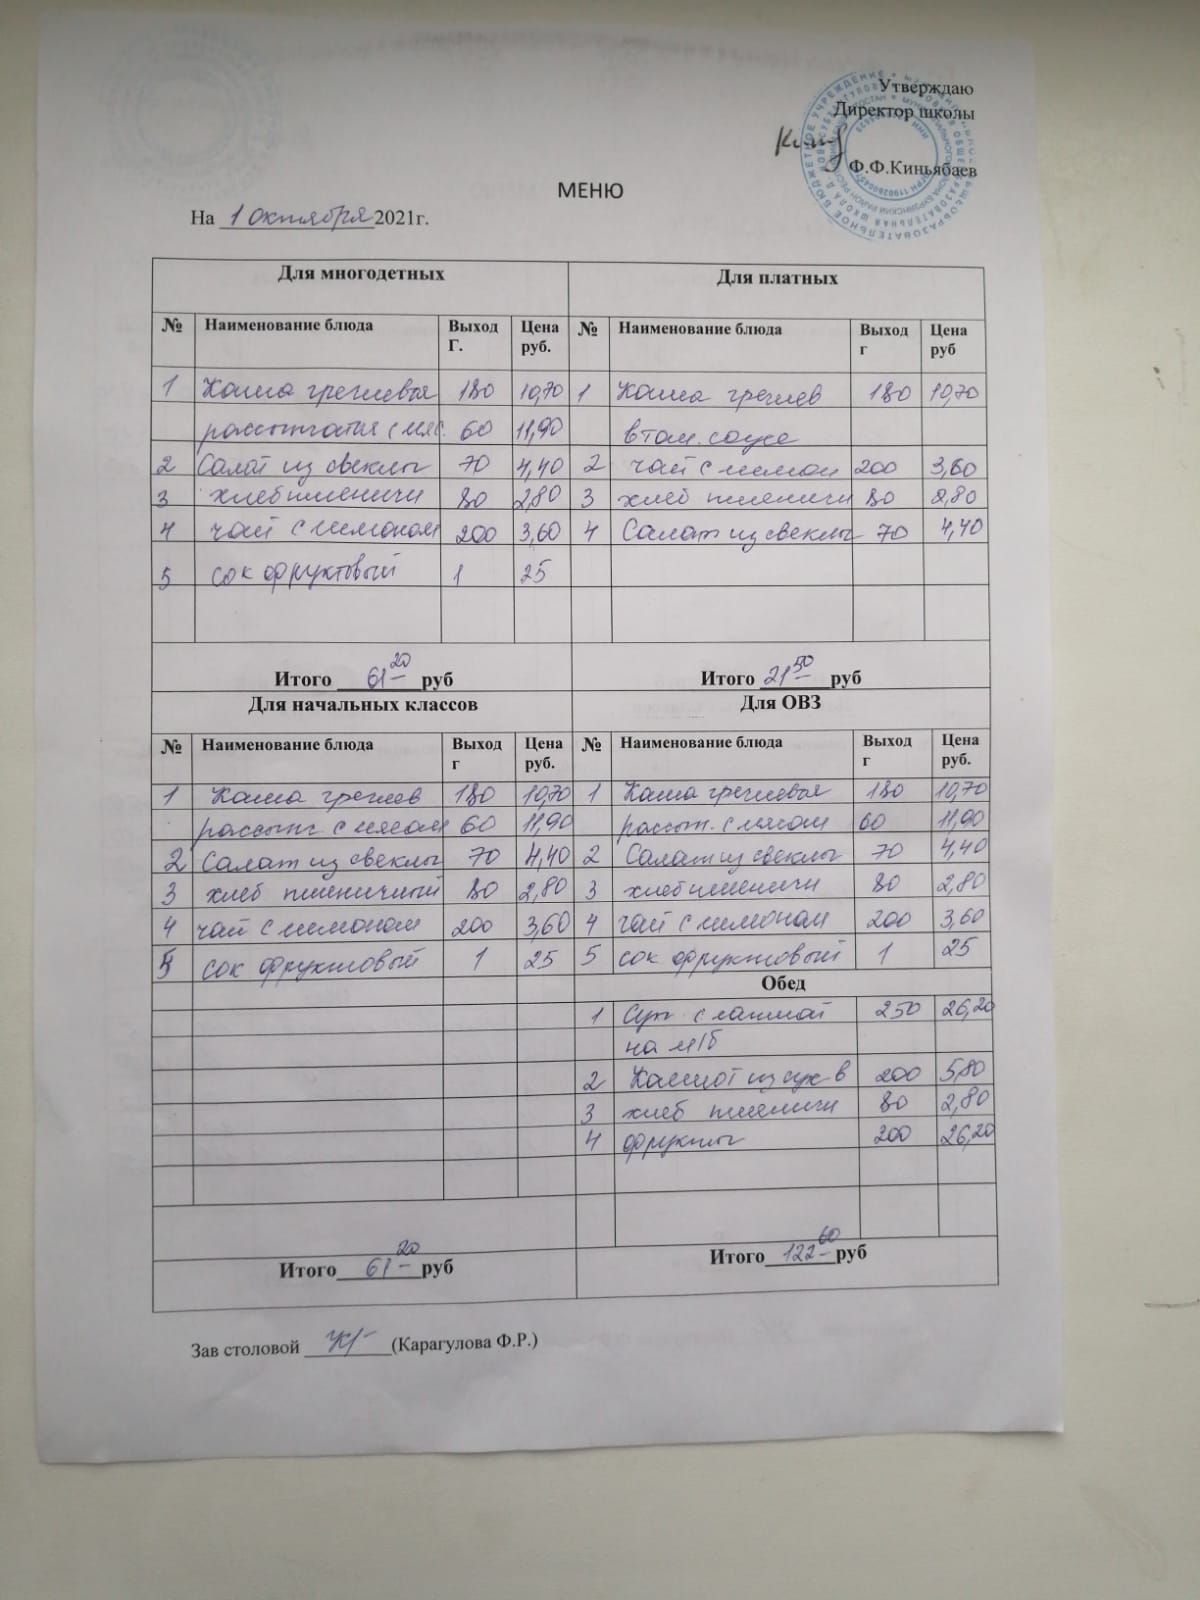 Утверждаю
Директор школы
Ф.Ф.Киньябаев
МЕНЮ
На 1 октября 2021г.
Для многодетных Для платных
№ Наименование блюда Выход Г. Цена руб. № Наименование блюда Выход г Цена руб
1 Каша гречневая 180 10,70 1 Каша гречнев 180 10,70
рассыпчатая с мяс. 60 11,90 в том. соусе
2 Салат из свеклы 70 4,40 2 чай с лимон 200 3,60
3 хлеб пшеничн 80 2,80 3 хлеб пшеничн 80 2,80
4 чай с лимоном 200 3,60 4 Салат из свеклы 70 4,40
5 сок фруктовый 1 25
Итого 61-20 руб Итого 21-50 руб
Для начальных классов Для ОВЗ
№ Наименование блюда Выход г Цена руб. № Наименование блюда Выход г Цена руб.
1 Каша гречнев 180 10,70 1 Каша гречневая 180 10,70
рассыпч с мясом 60 11,90 рассып. с мясом 60 11,90
2 Салат из свеклы 70 4,40 2 Салат из свеклы 70 4,40
3 хлеб пшеничный 80 2,80 3 хлеб пшеничн 80 2,80
4 чай с лимоном 200 3,60 4 чай с лимоном 200 3,60
5 сок фруктовый 1 25 5 сок фруктовый 1 25
Обед
1 Суп с лапшой 250 26,20
на м/б
2 Компот из сух в 200 5,80
3 хлеб пшеничн 80 2,80
4 фрукты 200 26,20
Итого 61-20 руб Итого 122-60 руб
Зав столовой (Карагулова Ф.Р.)